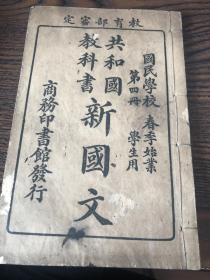 教育部審定
國民學校 春季始業
第四冊 學生用
共和國
教科書
新國文
商務印書館發行